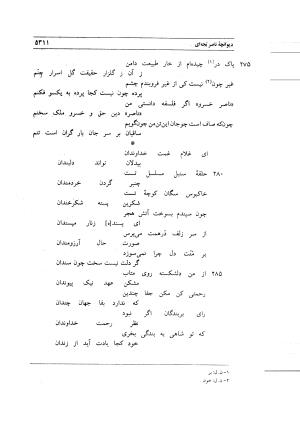 دیوانچهٔ ناصر بجه‌ای
۵۳۱۱
۲۷۵ پاک در(۱) چیده‌ام از خار طبیعت دامن
ز آن ز گلزار حقیقت گل اسرار چنم
غیر چون(۲) نیست کی از غیر فروبندم چشم
پرده چون نیست کجا پرده به یکسو فکنم
«ناصر خسرو» اگر فلسفه دانستی من
«ناصر»ه دین حق و خسرو ملک سخنم
چونکه صاف است چو جان این تن من چون گویم
صافیان بر سر جان بار گران است تنم
*
ای غلام غمت خداوندان
بیدلان تواند دلبندان
۲۸۰ حلقهٔ سنبل مسلسل تست
چنبر گردن خردمندان
خاکبوس سگان کوچهٔ تست
شکرین پسته شکرخندان
چون سپندم بسوخت آتش هجر
ای پسند[ه] زنار میسندان
از سر زلف درهمت می‌پرس
صورت حال آرزومندان
بر منت دل چرا نمی‌سوزد
گر دلت نیست سخت چون سندان
۲۸۵ از من دلشکسته روی متاب
مشکن عهد نیک پیوندان
رحمتی کن مکن جفا چندین
که ندارد بقا جهان چندان
رای بربندگان اگر نبود
نظر رحمت خداوندان
که تو شاهی به بندگی بخری
خود کجا یادت آید از زندان
۱- ن. ل: بر
۲- ن. ل: خون